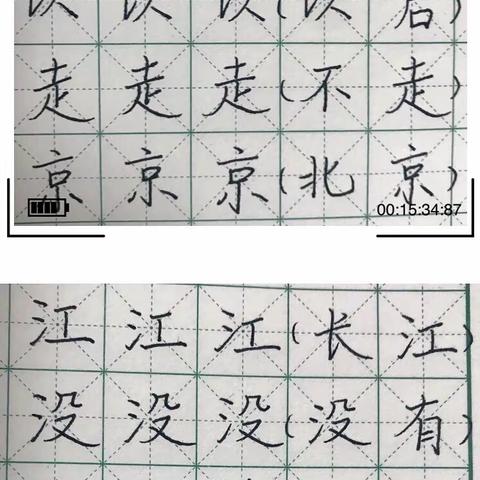 走走走(不走)
京京京(北京)
00:15:34:87
江江江(长江)
没没没(没有)